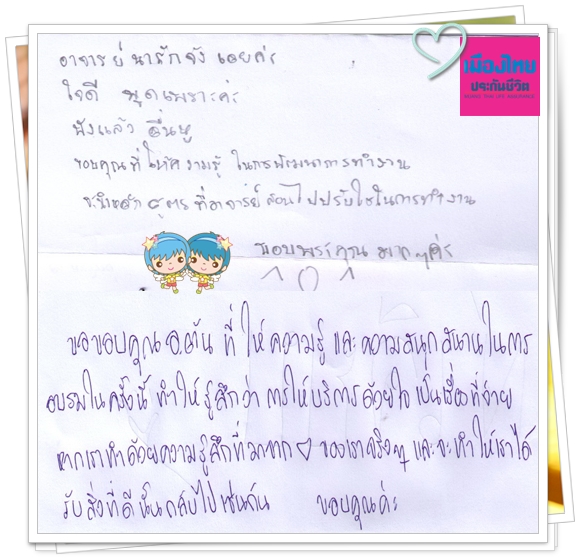 เมืองไทย
ประกันชีวิต
MUANG THAI LIFE ASSURANCE
อาจารย์ น่ารักจัง เลยค่ะ
ใจดี พูดเพราะค่ะ
ฟังแล้ว รื่นหู
ขอบคุณที่ให้ความรู้ ในการพัฒนาการทำงาน
จะนำหลักสูตร ที่อาจารย์สอนไปปรับใช้ในการทำงาน
ขอบพระคุณ มากๆค่ะ
ขอขอบคุณ อ.ตัน ที่ ให้ความรู้ และ ความสนุกสนาน ในการ
อบรมในครั้งนี้ ทำให้ รู้สึกว่า การให้บริการด้วยใจ เป็นเรื่องที่ง่าย
หากเราทำด้วยความรู้สึกที่มาจาก ♡ ของเราจริงๆ และจะทำให้เราได้
รับสิ่งที่ดีนั้นกลับไปเช่นกัน ขอบคุณค่ะ